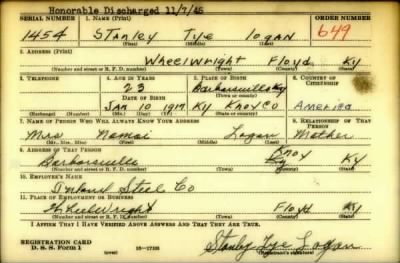 Honorable Discharged 11/7/45
SERIAL NUMBER 1. NAME (Print) ORDER NUMBER
1454 Stanley Tye Logan 649
(First) (Middle) (Last)
2. ADDRESS (Print)
Wheelwright Floyd Ky
(Number and street or R. F. D. number) (Town) (County) (State)
3. TELEPHONE 4. AGE IN YEARS 5. PLACE OF BIRTH 6. COUNTRY OF CITIZENSHIP
23 Barboursville Ky
DATE OF BIRTH (Town or county)
Jan 10 1917 Ky Knox Co America
(Exchange) (Number) (Mo.) (Day) (Yr.) (State or country)
7. NAME OF PERSON WHO WILL ALWAYS KNOW YOUR ADDRESS 8. RELATIONSHIP OF THAT PERSON
Mrs Logan Mother
(Mr., Mrs., Miss) (First) (Middle) (Last)
9. ADDRESS OF THAT PERSON
Knox
Barboursville Ky Ky
(Number and street or R. F. D. number) (Town) (County) (State)
10. EMPLOYER'S NAME
Inland Steel Co
11. PLACE OF EMPLOYMENT OR BUSINESS
Wheelwright Floyd Ky
(Number and street or R. F. D. number) (Town) (County) (State)
I AFFIRM THAT I HAVE VERIFIED ABOVE ANSWERS AND THAT THEY ARE TRUE.
REGISTRATION CARD
D. S. S. Form 1 16-17105 Stanley Tye Logan
(Registrant's signature)